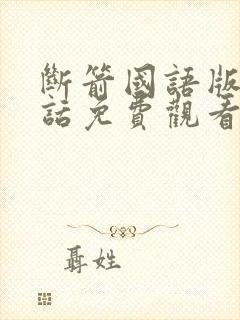 斷箭國語版
話免費觀看
聶姓